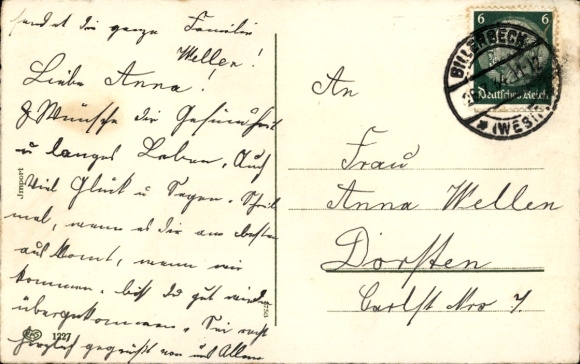 sendet die ganze Familie
Wellen!
Liebe Anna!
Wünsche dir Gesundheit
u langes Leben, Auch
Viel Glück u Segen. Schreib
mal, wenn es dir am besten
aus komt, wenn wir
kommen. bist du gut wieder
übergekommen. Sei recht
herzlich gegrüßt von uns Allen
Jmport
EAS
1227
6 6
Deutsches Reich
BILLERBECK
(WESTF
An
Frau
Anna Wellen
Dorsten
Carlst Nro 7.